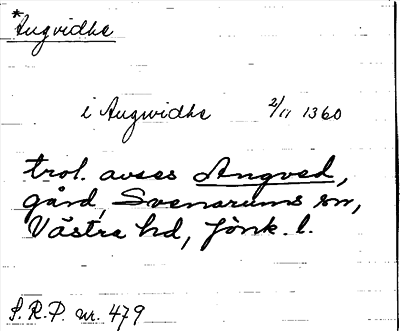 *Augvidhe
i Augvidhe 2/11 1360
trol. avses Angved,
gård, Svenarums sn,
Västra hd, Jönk. l.
S.R.P. nr. 479